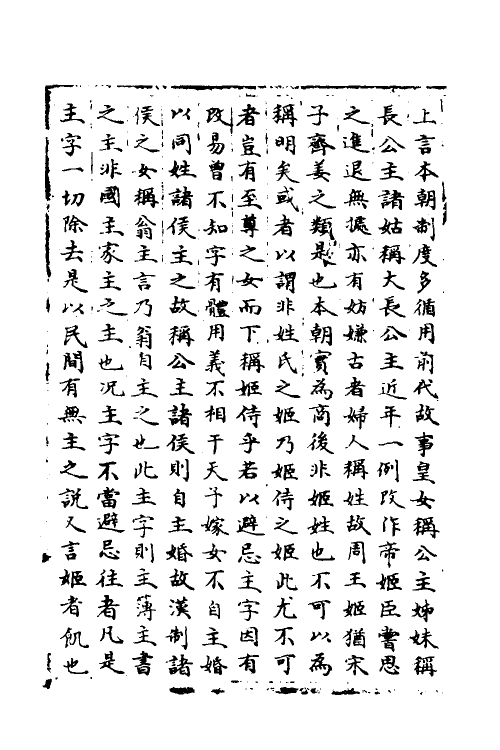 上言本朝制度多循用前代故事皇女稱公主姊妹稱
長公主諸姑稱大長公主近年一例改作帝姬臣嘗思
之進退無據亦有妨嫌古者婦人稱姓故周王姬猶宋
子齊姜之類是也本朝實為商後非姬姓也不可以為
稱明矣或者以謂非姓氏之姬乃姬侍之姬此尤不可
者豈有至尊之女而下稱姬侍乎若以避忌主字因有
改易曾不知字有體用義不相干天子嫁女不自主婚
以同姓諸侯主之故稱公主諸侯則自主婚故漢制諸
侯之女稱翁主言乃翁自主之也此主字則主薄主書
之主非國主家主之主也况主字不當避忌往者凡是
主字一切除去是以民間有無主之説又言姬者飢也